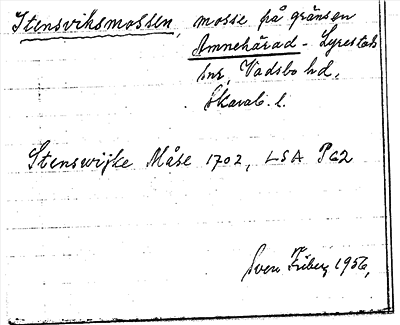 Stensviksmossen, mosse på gränsen
Amnehärad - Lyrestads
snr, Vadsbo hd,
Skarab. l.
Stenswijke Måse 1702, LSA P62
Sven Friberg 1956,